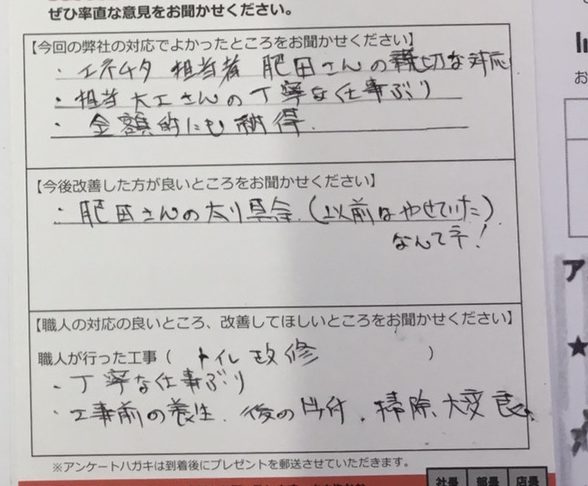 ぜひ率直な意見をお聞かせください。
【今回の弊社の対応でよかったところをお聞かせください】
・エネチタ 担当者 肥田さんの親切な対応
・担当大工さんの丁寧な仕事ぶり
・金額的にも納得.
【今後改善した方が良いところをお聞かせください】
・肥田さんの太り具合.(以前はやせていた)
なんてネ!
【職人の対応の良いところ、改善してほしいところをお聞かせください】
職人が行った工事( トイレ改修 )
・丁寧な仕事ぶり
・工事前の養生.後の片付.掃除.大変良
※アンケートハガキは到着後にプレゼントを郵送させていただきます。
社長 部長 店長
お
ア
★